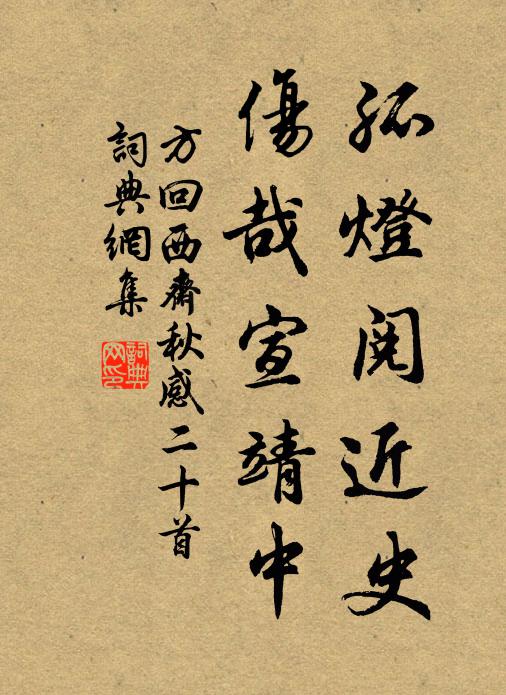 孤燈閱近史
傷哉宣靖中
方回西齋秋感二十首
詞典網集
詞典
网印